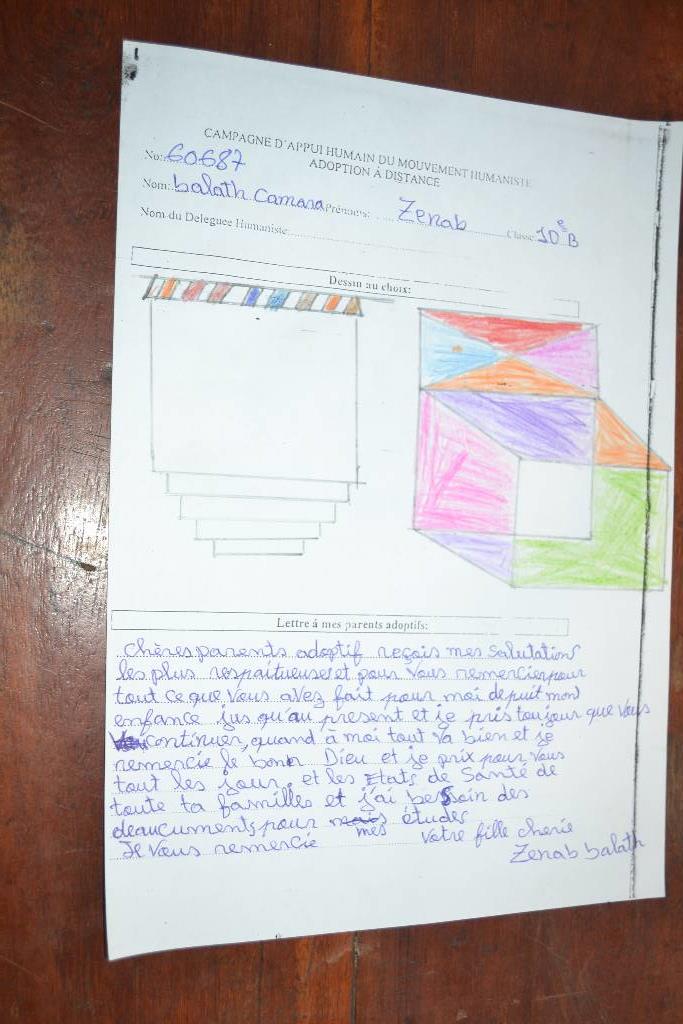 CAMPAGNE D'APPUI HUMAIN DU MOUVEMENT HUMANISTE
ADOPTION À DISTANCE
No: 60687
Nom: balath Camara Prénoms: Zenab Classe: 10e B
Nom du Deleguee Humaniste:
Dessin au choix:
Lettre à mes parents adoptifs:
chères parents adoptif reçois mes salutations
les plus respaitueuses et pour vous remercier pour
tout ce que vous avez fait pour moi depuit mon
enfance jusqu'au present et je pris toujour que vous
continuer, quand à moi tout va bien et je
remercie le bon Dieu et je prix pour vous
tout les jour, et les Etats de Santé de
toute ta familles et j'ai besoin des
deaucuments pour mes études
Je vous remercie votre fille cherie
Zenab balath